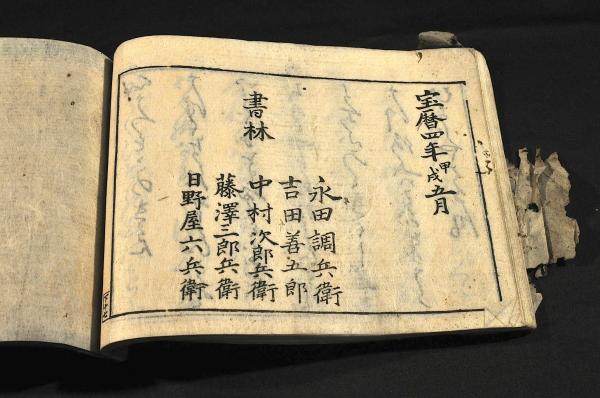 宝暦四年甲戌五月
書林
永田調兵衛
吉田善五郎
中村次郎兵衛
藤澤三郎兵衛
日野屋六兵衛